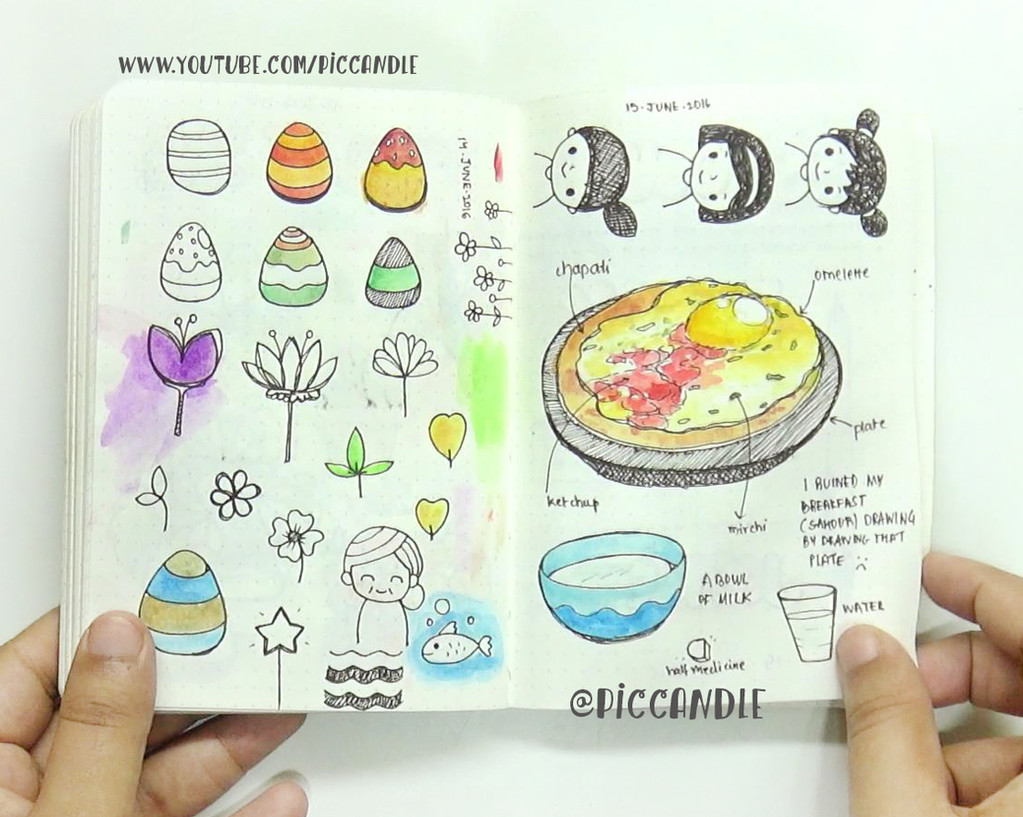 www.youtube.com/piccandle
14.JUNE.2016
15.JUNE.2016
chapati
omelette
plate
ketchup
mirchi
I RUINED MY
BREAKFAST
(SAHOUR) DRAWING
BY DRAWING THAT
PLATE
A BOWL
OF MILK
WATER
half medicine
@PiCCANDLE